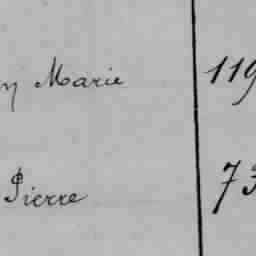 Marie 119
Pierre 73